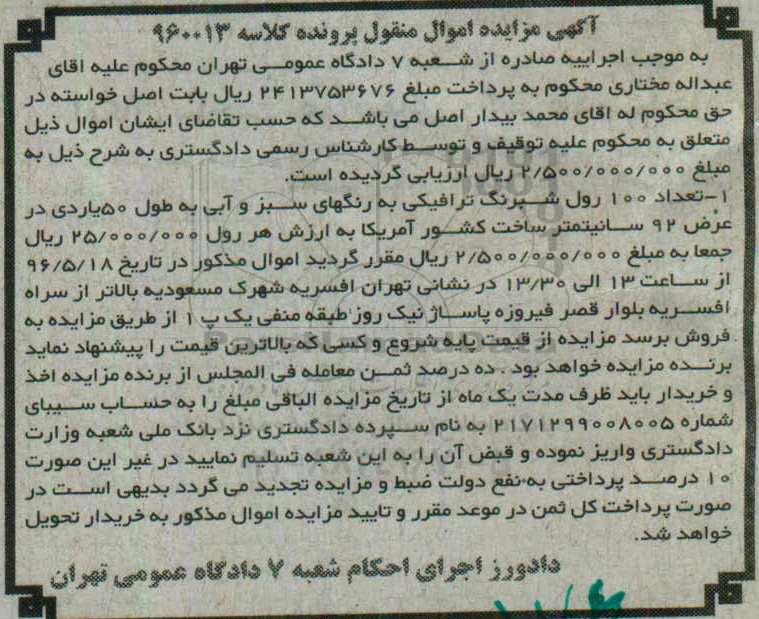 آگهی مزایده اموال منقول پرونده کلاسه ۹۶۰۰۱۳
به موجب اجراییه صادره از شعبه ۷ دادگاه عمومی تهران محکوم علیه اقای
عبداله مختاری محکوم به پرداخت مبلغ ۲۴۱۳۷۵۳۶۷۶ ریال بابت اصل خواسته در
حق محکوم له اقای محمد بیدار اصل می باشد که حسب تقاضای ایشان اموال ذیل
متعلق به محکوم علیه توقیف و توسط کارشناس رسمی دادگستری به شرح ذیل به
مبلغ ۲/۵۰۰/۰۰۰/۰۰۰ ریال ارزیابی گردیده است.
۱-تعداد ۱۰۰ رول شبرنگ ترافیکی به رنگهای سبز و آبی به طول ۵۰یاردی در
عرض ۹۲ سانیتمتر ساخت کشور آمریکا به ارزش هر رول ۲۵/۰۰۰/۰۰۰ ریال
جمعا به مبلغ ۲/۵۰۰/۰۰۰/۰۰۰ ریال مقرر گردید اموال مذکور در تاریخ ۹۶/۵/۱۸
از ساعت ۱۳ الی ۱۳/۳۰ در نشانی تهران افسریه شهرک مسعودیه بالاتر از سراه
افسریه بلوار قصر فیروزه پاساژ نیک روز طبقه منفی یک پ ۱ از طریق مزایده به
فروش برسد مزایده از قیمت پایه شروع و کسی که بالاترین قیمت را پیشنهاد نماید
برنده مزایده خواهد بود . ده درصد ثمن معامله فی المجلس از برنده مزایده اخذ
و خریدار باید ظرف مدت یک ماه از تاریخ مزایده الباقی مبلغ را به حساب سیبای
شماره ۲۱۷۱۲۹۹۰۰۸۰۰۵ به نام سپرده دادگستری نزد بانک ملی شعبه وزارت
دادگستری واریز نموده و قبض آن را به این شعبه تسلیم نمایید در غیر این صورت
۱۰ درصد پرداختی به نفع دولت ضبط و مزایده تجدید می گردد بدیهی است در
صورت پرداخت کل ثمن در موعد مقرر و تایید مزایده اموال مذکور به خریدار تحویل
خواهد شد.
دادورز اجرای احکام شعبه ۷ دادگاه عمومی تهران